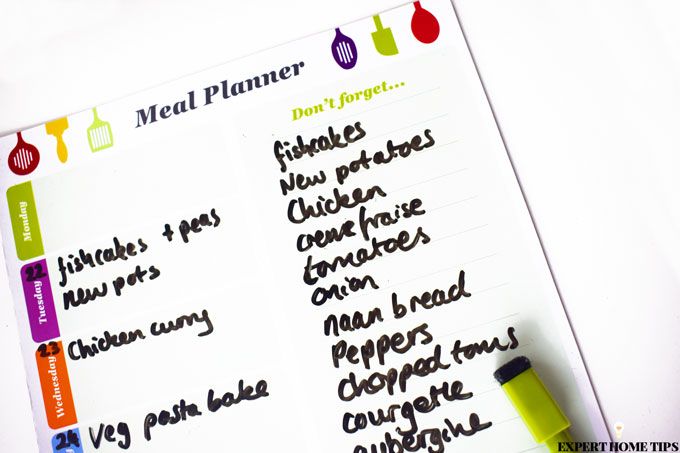 Meal Planner
Monday
22 Tuesday
fishcakes + peas
new pots
23 Wednesday
Chicken curry
24
Veg pasta bake
Don't forget...
fishcakes
New potatoes
Chicken
creme fraise
tomatoes
onion
naan bread
Peppers
chopped toms
courgette
aubergine
EXPERT HOME TIPS